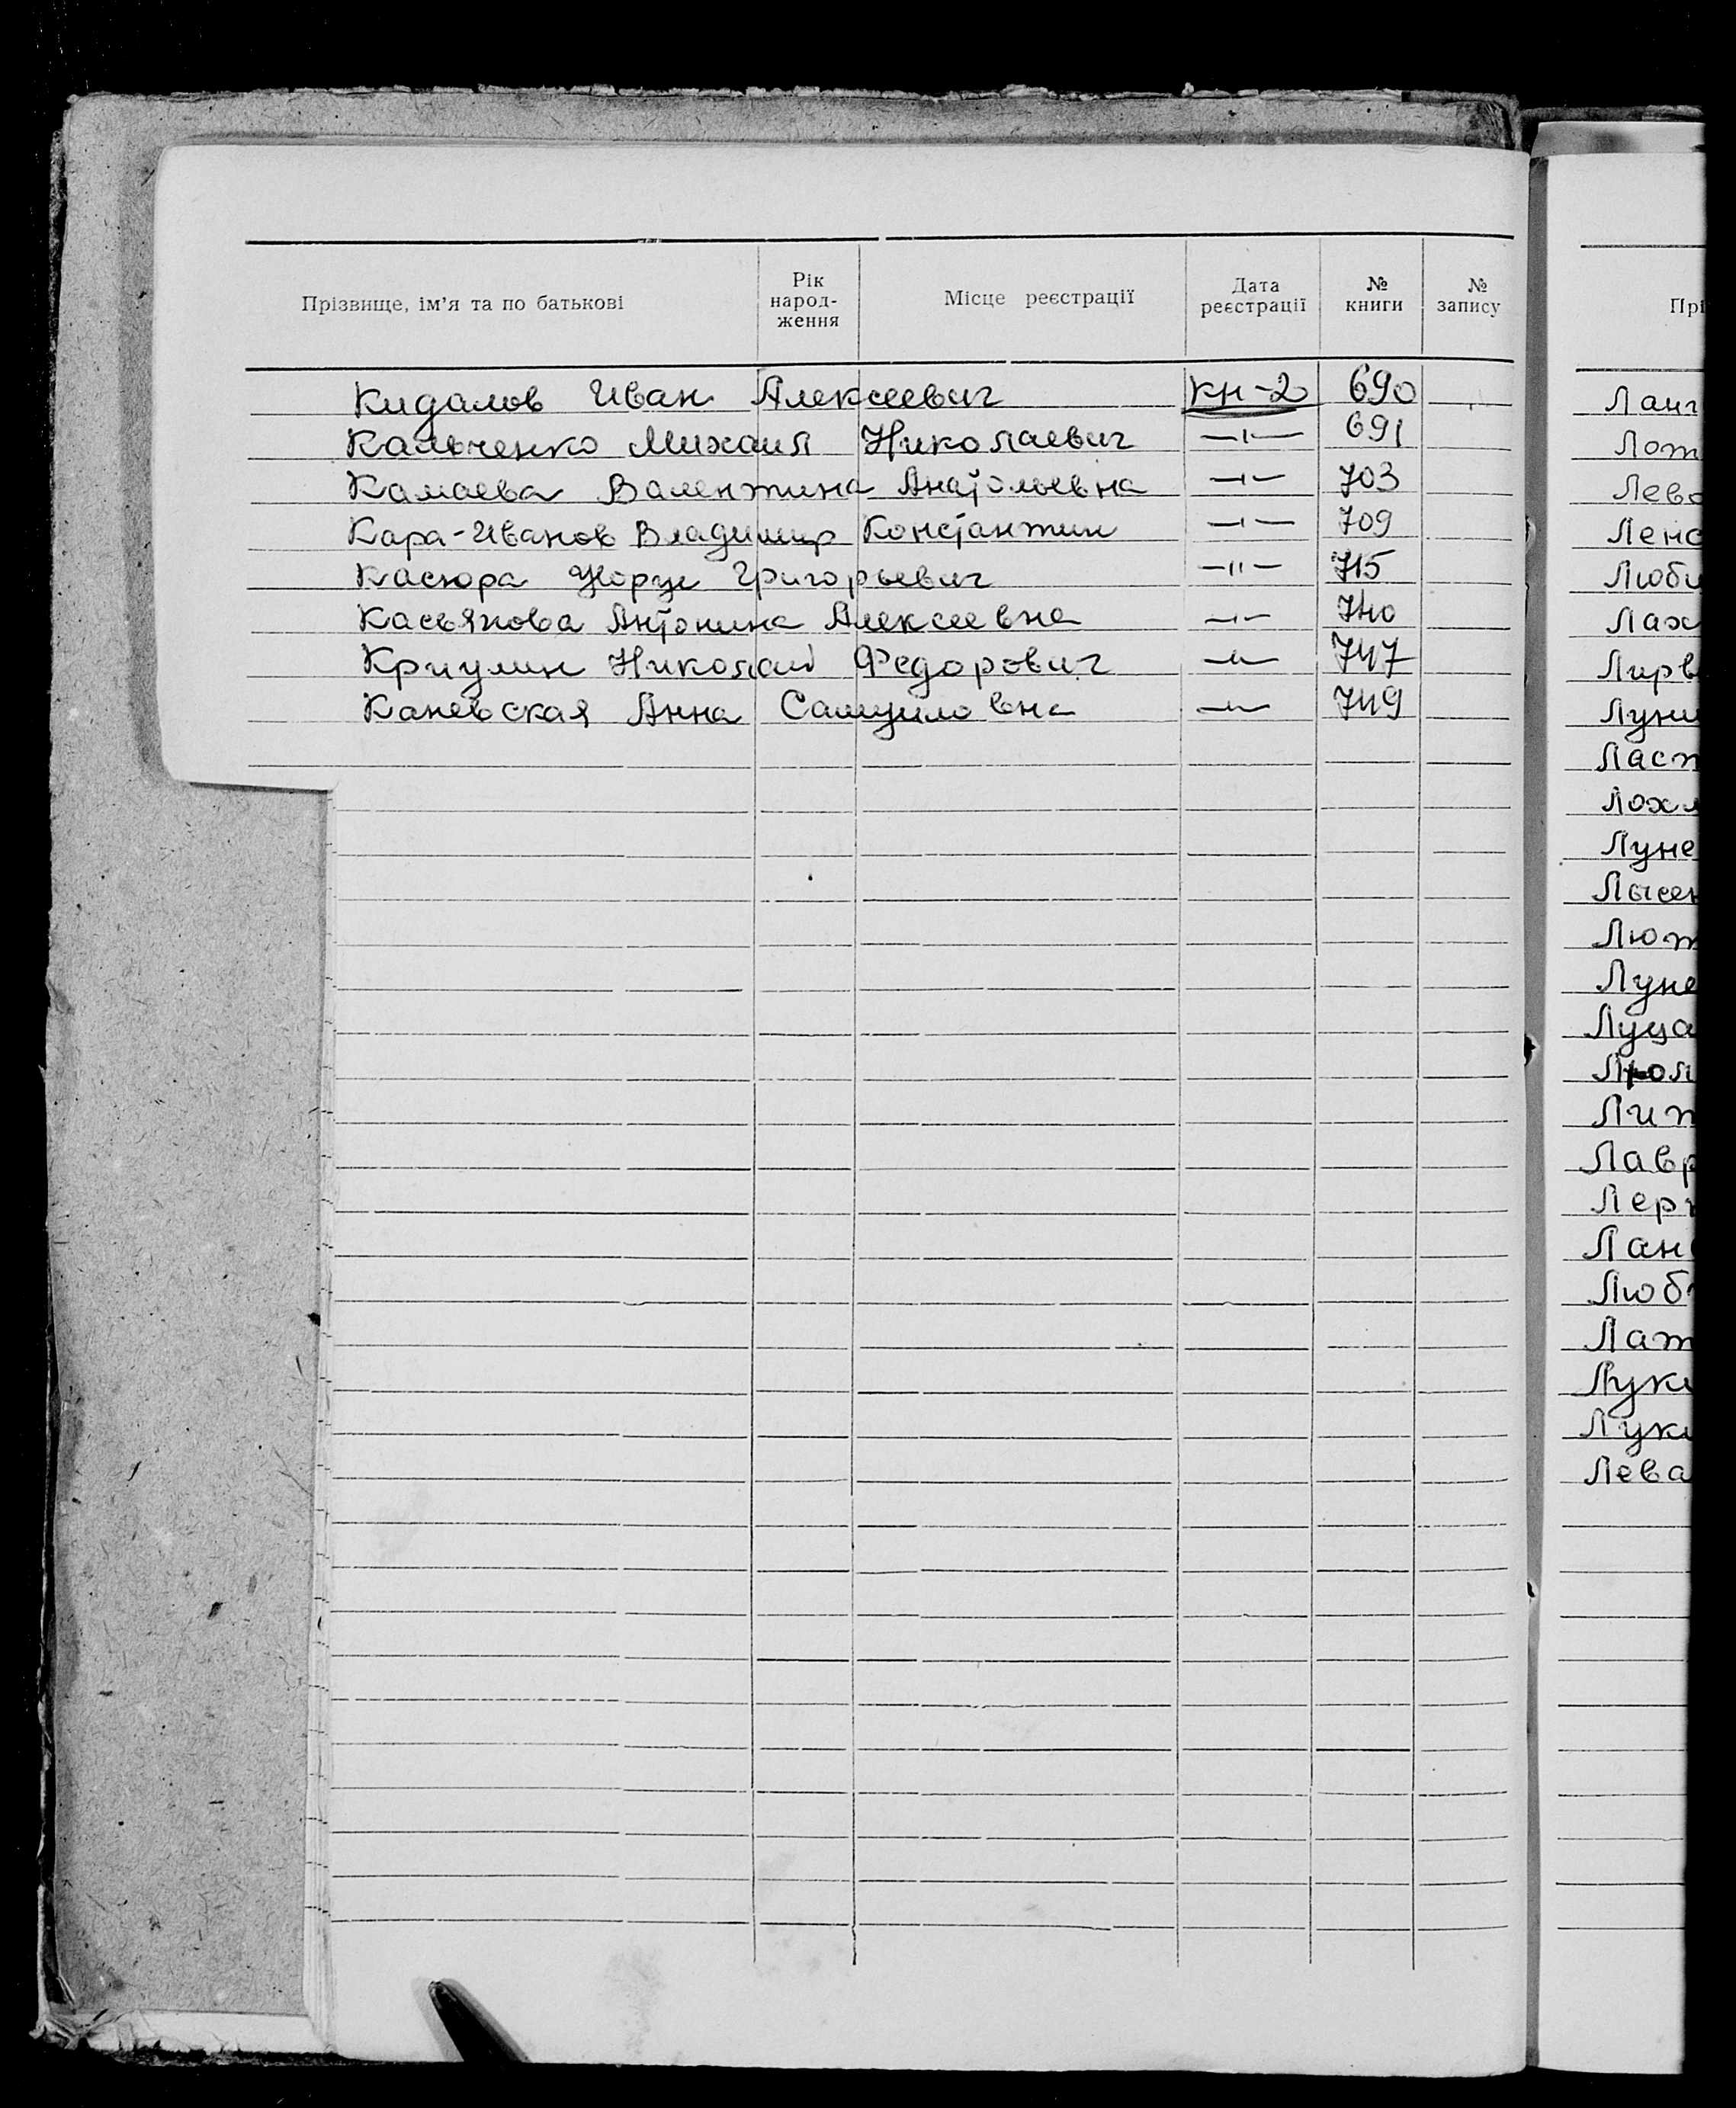 Прізвище, ім'я та по батькові Рік народ-ження Місце реєстрації Дата реєстрації № книги № запису
Кидалов Иван Алексеевич кн-2 690
Кальченко Михаил Николаевич —ı— 691
Камаева Валентина Анатольевна —ı— 703
Кара-Иванов Владимир Константин —ı— 709
Касюра Григорьевич —ıı— 715
Касьянова Антонина Алексеевна —ı— 740
Криулин Николай Федорович —ıı— 747
Каневская Анна Самуиловна —ıı— 749
Прі
Ланг
Лож
Лево
Ленс
Люби
Лах
Лирв
Луни
Ласт
Лохм
Луне
Лысен
Люж
Луне
Луца
Лит
Лавр
Лер
Лан
Люб
Лат
Луки
Луки
Лева